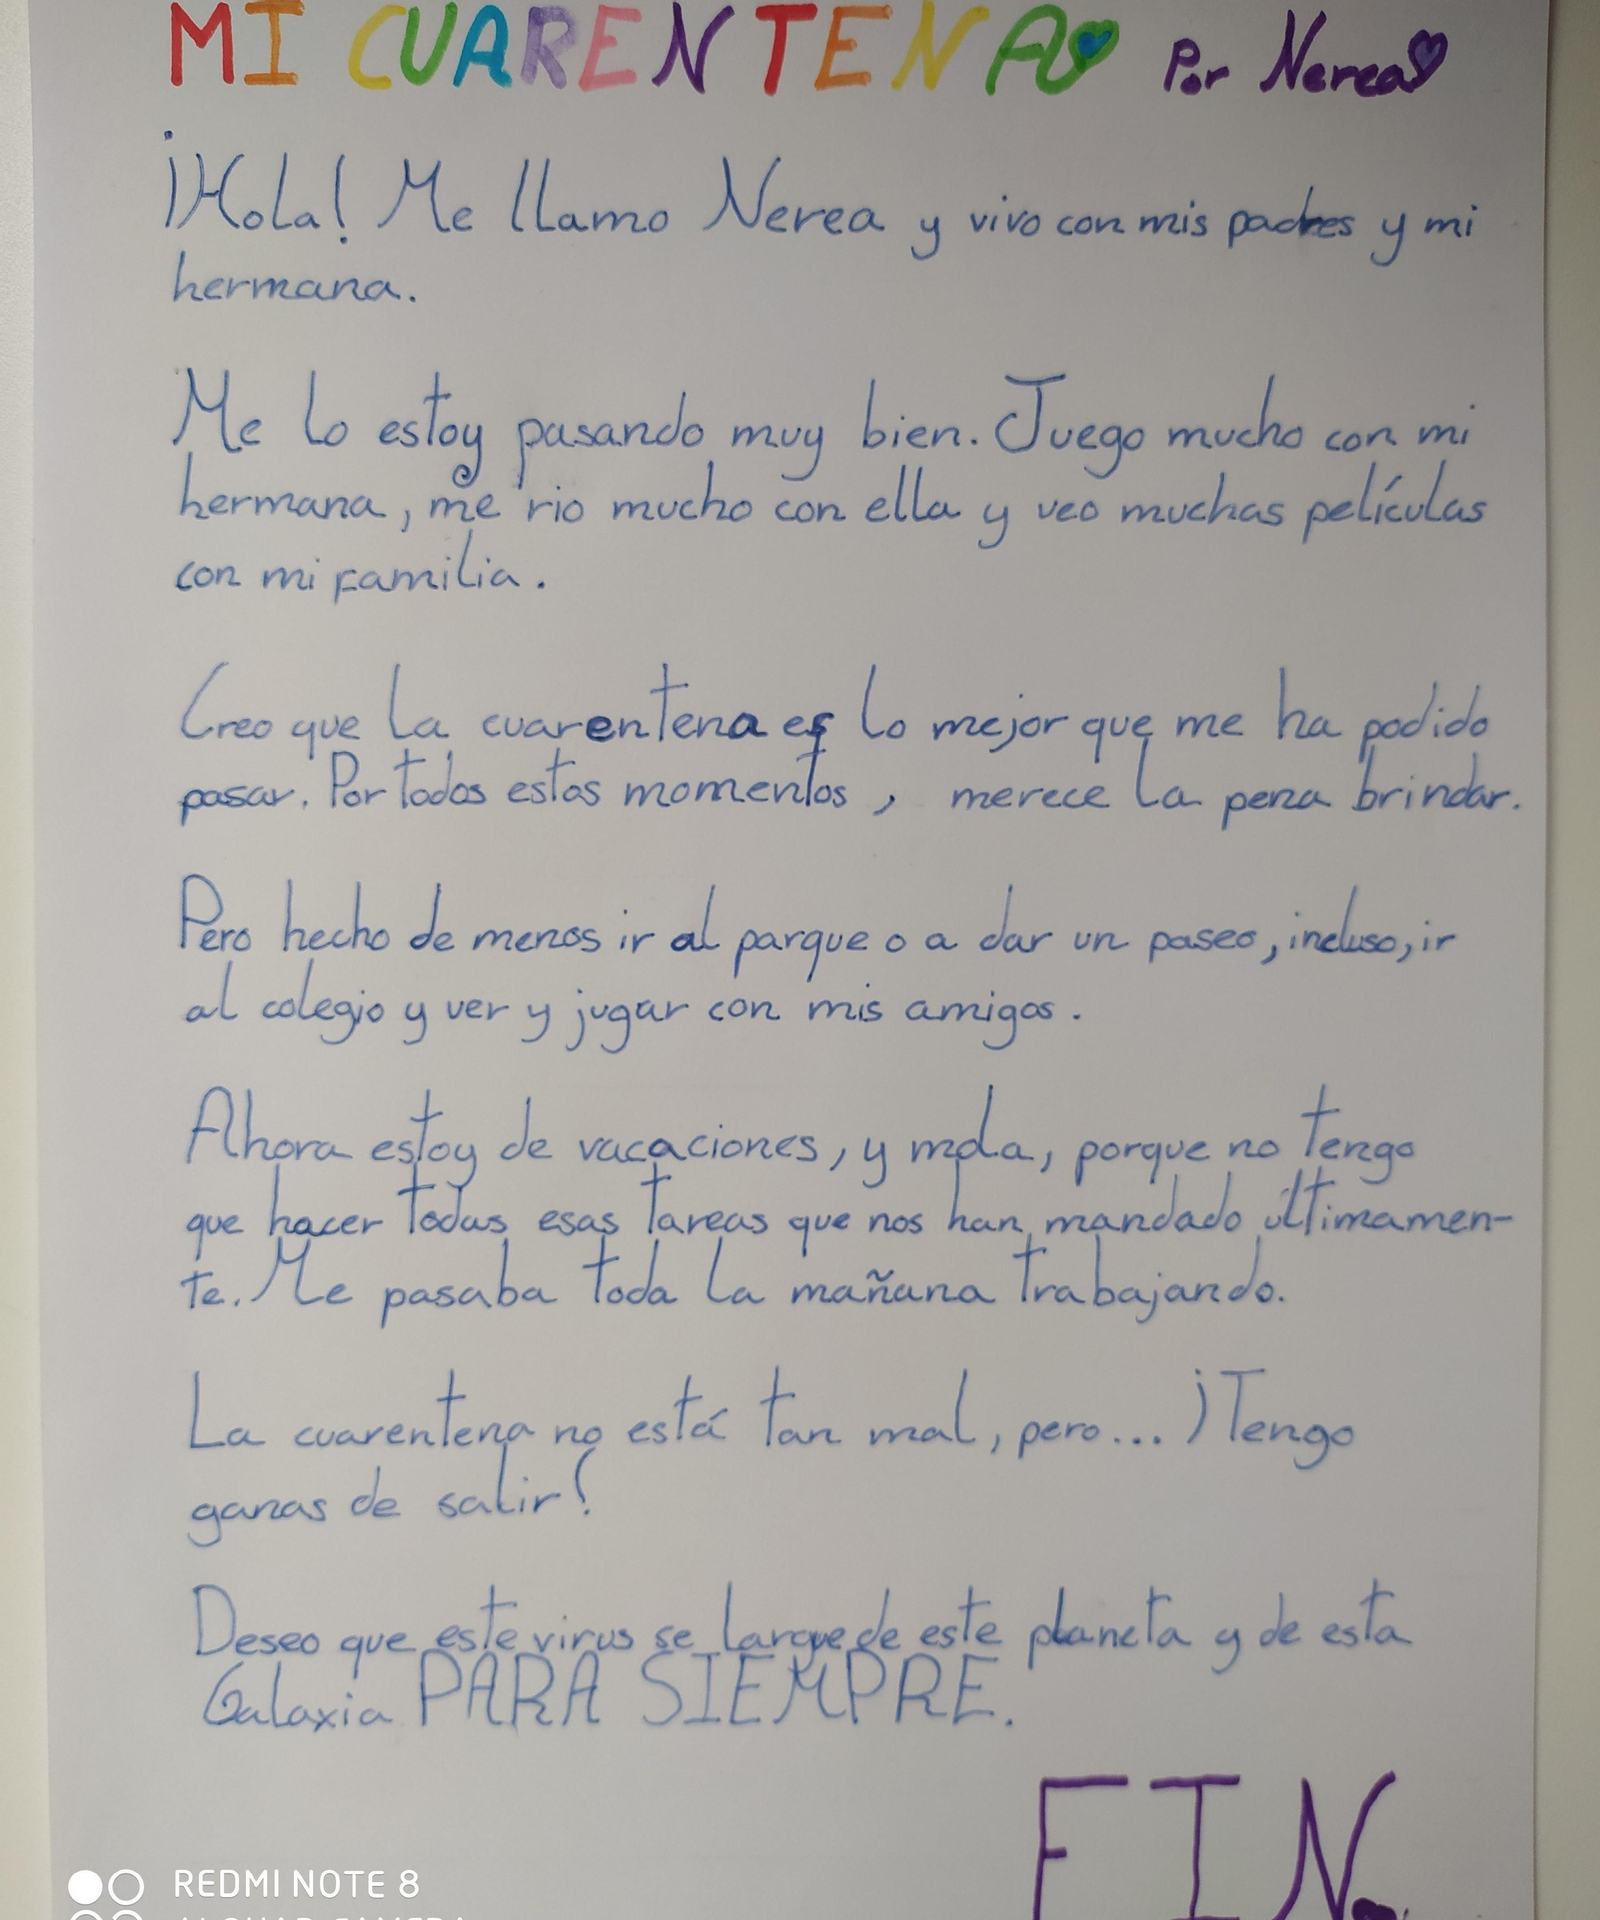 MI CUARENTENA Por Nerea
¡Hola! Me llamo Nerea y vivo con mis padres y mi
hermana.
Me lo estoy pasando muy bien. Juego mucho con mi
hermana, me rio mucho con ella y veo muchas películas
con mi familia.
Creo que la cuarentena es lo mejor que me ha podido
pasar. Por todos estos momentos, merece la pena brindar.
Pero hecho de menos ir al parque o a dar un paseo, incluso, ir
al colegio y ver y jugar con mis amigos.
Ahora estoy de vacaciones, y mola, porque no tengo
que hacer todas esas tareas que nos han mandado últimamen-
te. Me pasaba toda la mañana trabajando.
La cuarentena no está tan mal, pero... ¡Tengo
ganas de salir!
Deseo que este virus se largue de este planeta y de esta
Galaxia PARA SIEMPRE.
FIN
REDMI NOTE 8